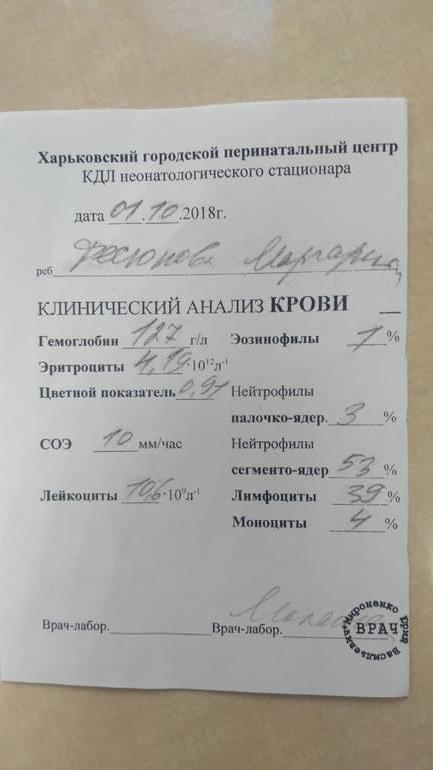 Харьковский городской перинатальный центр
КДЛ неонатологического стационара
дата 01.10.2018г.
реб Маргарита
КЛИНИЧЕСКИЙ АНАЛИЗ КРОВИ
Гемоглобин 127 г/л Эозинофилы 1 %
Эритроциты 4,19·10¹²л⁻¹
Цветной показатель 0,91 Нейтрофилы
палочко-ядер. 3 %
СОЭ 10 мм/час Нейтрофилы
сегменто-ядер 53 %
Лейкоциты 10,6·10⁹л⁻¹ Лимфоциты 39 %
Моноциты 4 %
Врач-лабор. Врач-лабор.
ВРАЧ
Мироненко Васильевич